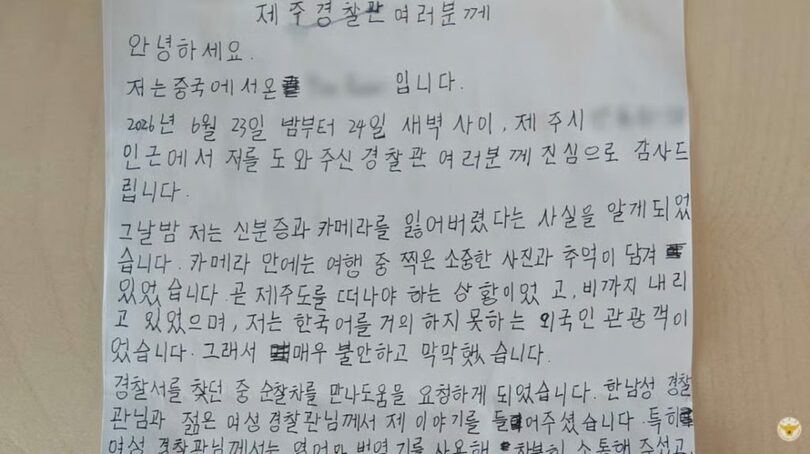 제주경찰관 여러분께
안녕하세요.
저는 중국에서 온 입니다.
2026년 6월 23일 밤부터 24일 새벽 사이, 제주시
인근에서 저를 도와주신 경찰관 여러분께 진심으로 감사드
립니다.
그날밤 저는 신분증과 카메라를 잃어버렸다는 사실을 알게 되었
습니다. 카메라 안에는 여행 중 찍은 소중한 사진과 추억이 담겨
있었습니다. 곧 제주도를 떠나야 하는 상황이었고, 비까지 내리
고 있었으며, 저는 한국어를 거의 하지 못하는 외국인 관광객이
었습니다. 그래서 매우 불안하고 막막했습니다.
경찰서를 찾던 중 순찰차를 만나 도움을 요청하게 되었습니다. 한 남성 경찰
관님과 젊은 여성 경찰관님께서 제 이야기를 들어주셨습니다. 특히
여성 경찰관님께서는 영어와 번역기를 사용해 차분히 소통해 주셨고,